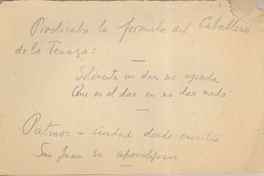 Practicaba la fórmula del Caballero
de la Tenaza:
Solamente un dar me agrada
Que es el dar en no dar nada
Patmos – ciudad donde escribió
San Juan su apocalipsis